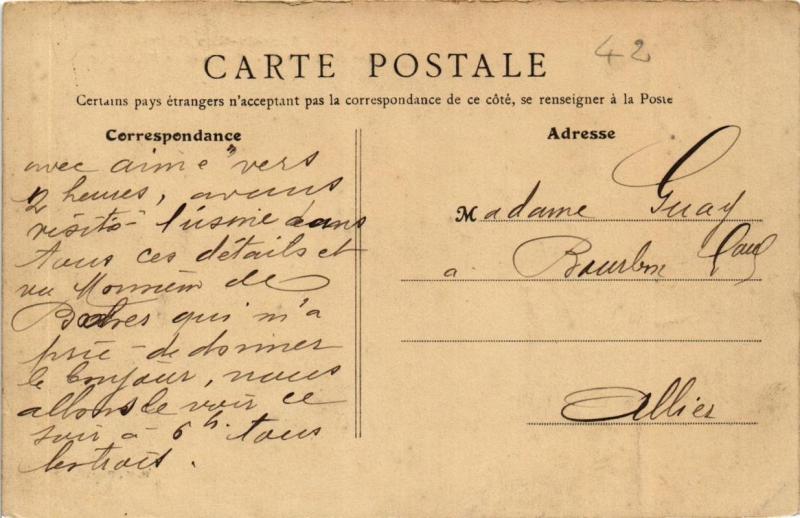 42
CARTE POSTALE
Certains pays étrangers n'acceptant pas la correspondance de ce côté, se renseigner à la Poste
Correspondance
avec aimé vers
2 heures, avons
visité l'usine dans
tous ces détails et
vu de
qui m'a
prié de donner
le bonjour, nous
allons le voir ce
soir à 6 h. tous
les trois.
Adresse
Madame Guay
a Bourbon
Allier